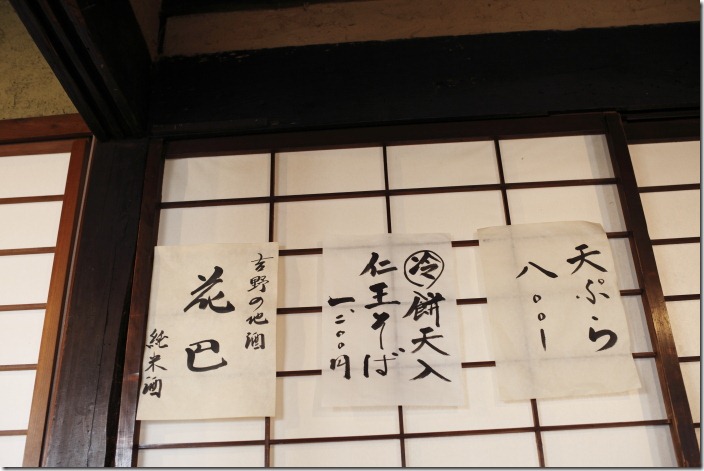 天ぷら
八〇〇ー
冷餅天入
仁王そば
一、二〇〇円
吉野の地酒
花巴
純米酒